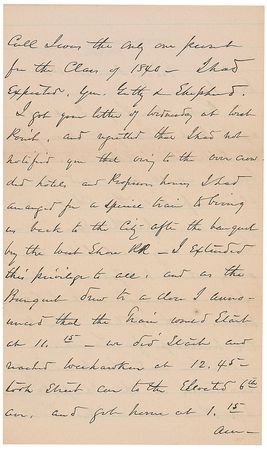 Call I was the only one present
for the Class of 1840 — I had
Expected, you, Getty & Shepherd.
I got your letter of Wednesday at West
Point, and regretted that I had not
notified you that owing to the over crow-
ded hotels, and Professors houses I had
arranged for a special train to bring
us back to the City after the banquet
by the West Shore RR — I extended
this privilege to all, and as the
Banquet drew to a close I annou-
nced that the Train would Start
at 11.15 — we did Start and
reached Weehawken at 12.45 —
took Street car to the Elevated 6th
av. and got home at 1.15
am —